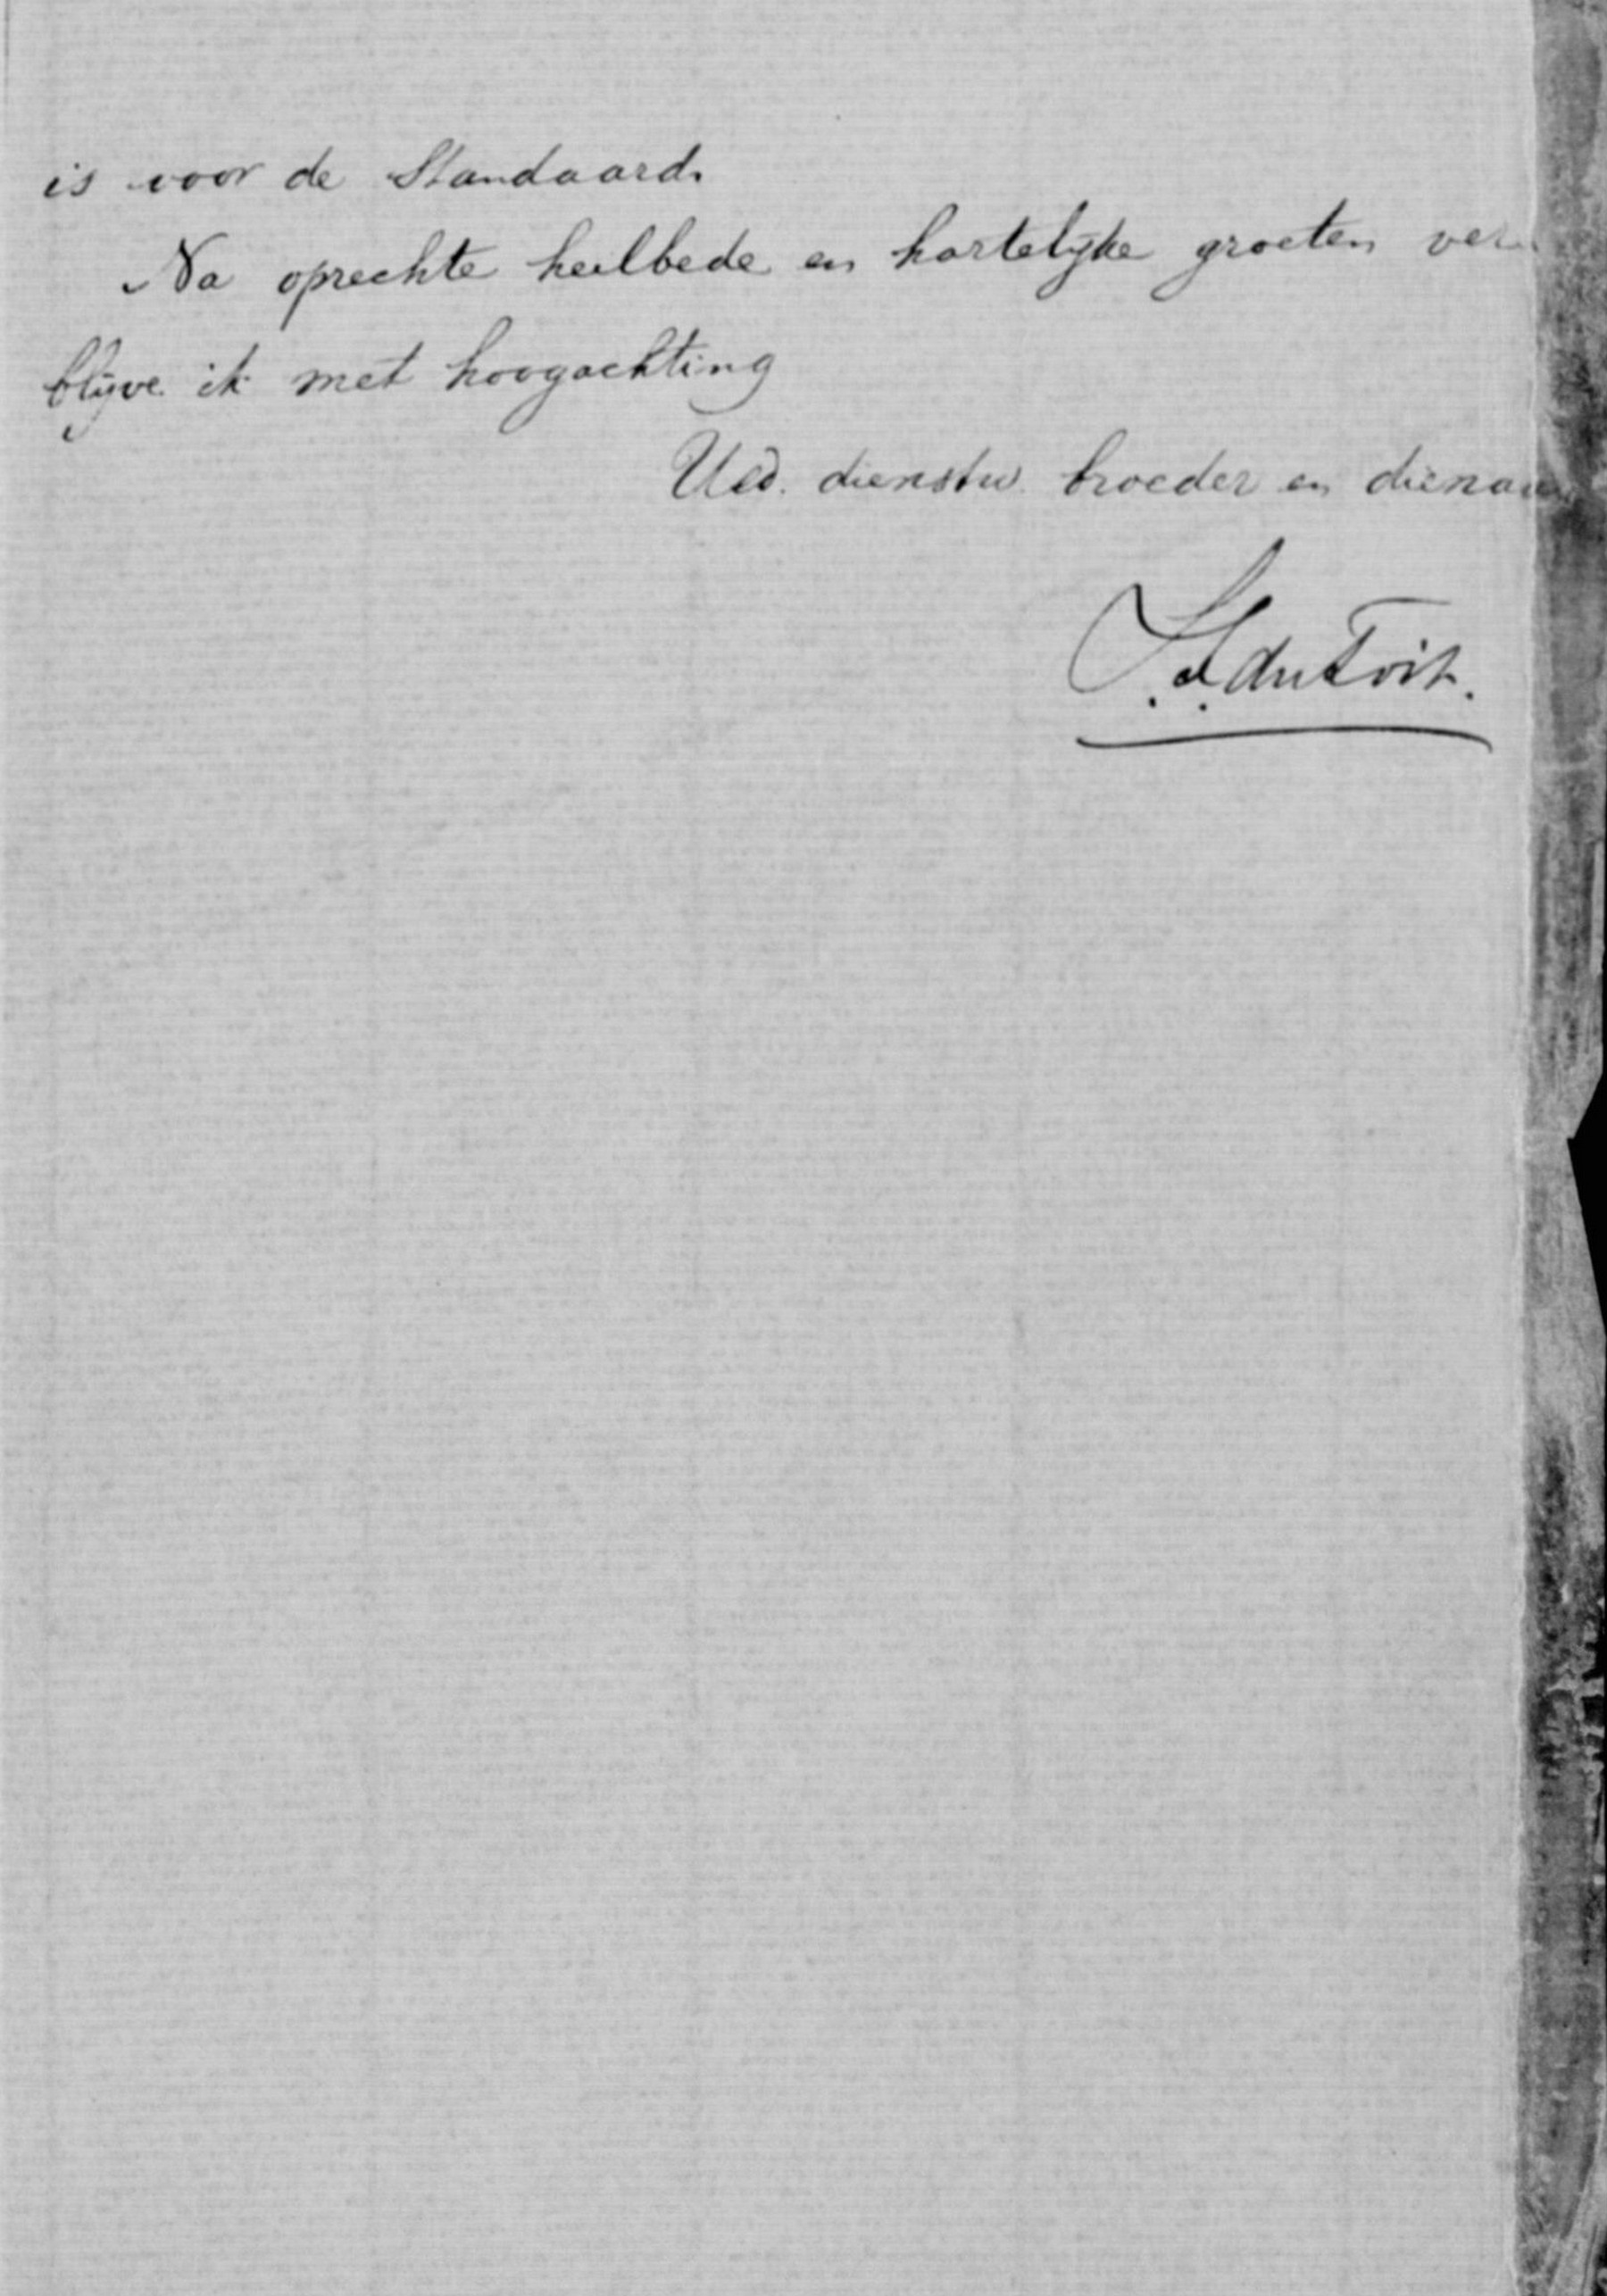 is voor de Standaard.
Na oprechte heilbede en hartelijke groeten ver
blijve ik met hoogachting
UEd. dienstw. broeder en dienaar
S. J. du Toit.